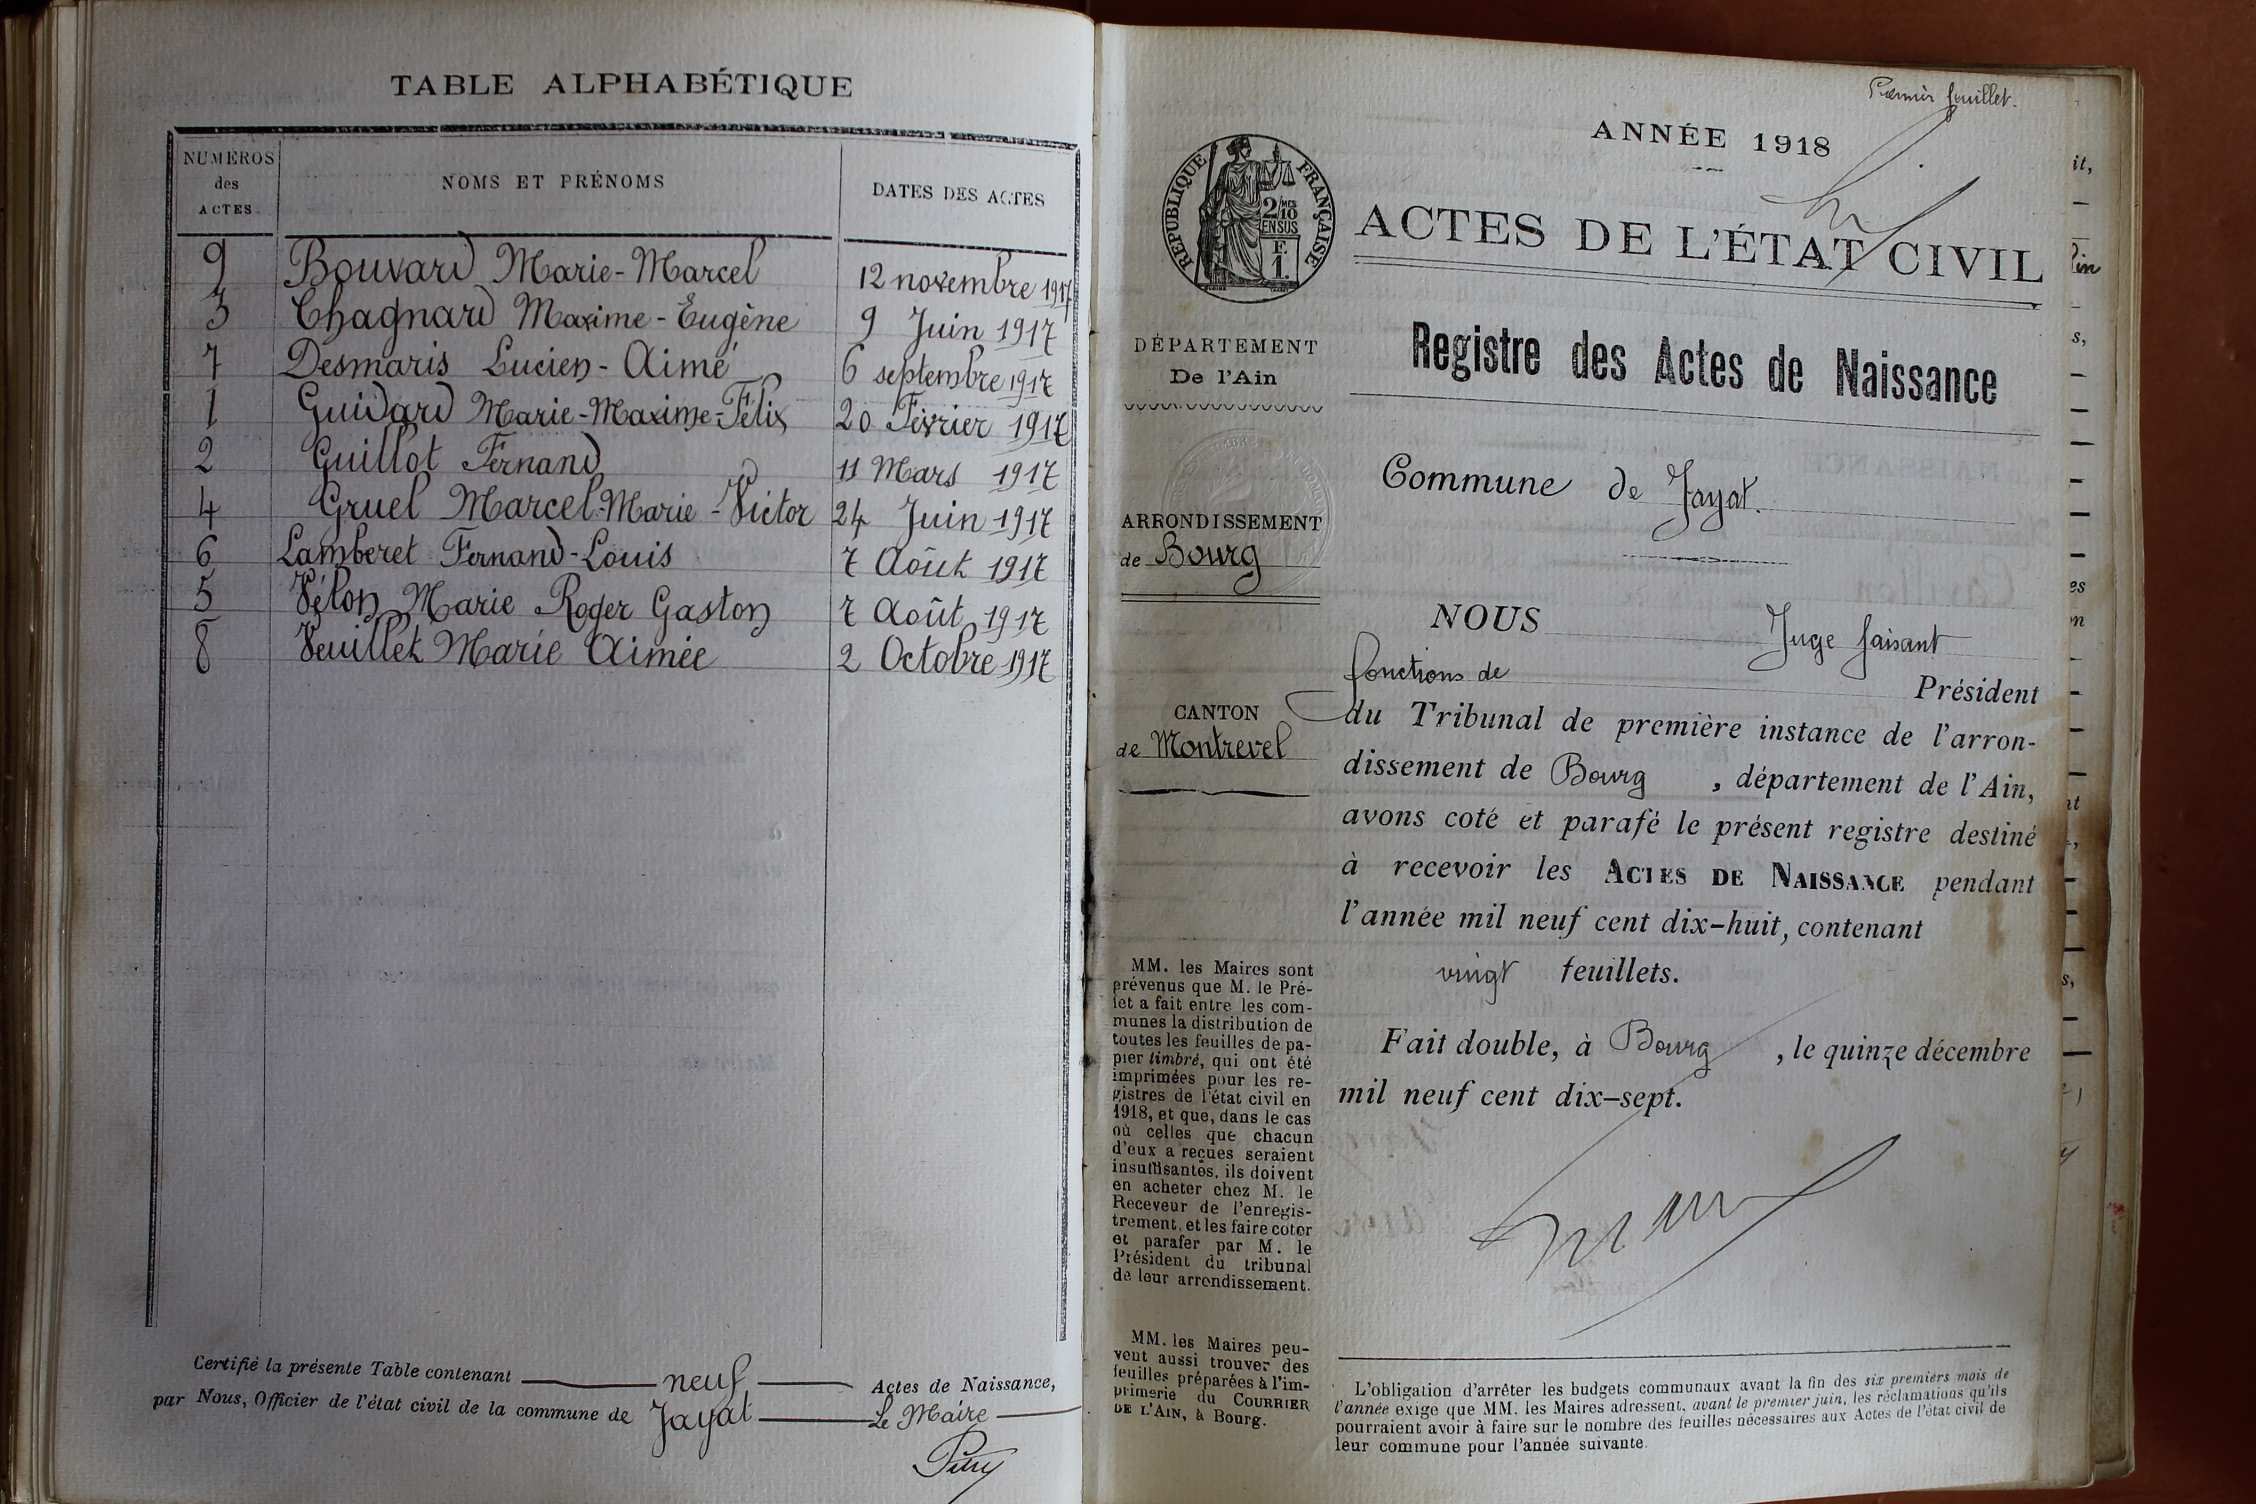 TABLE ALPHABÉTIQUE
NUMÉROS
des
ACTES
NOMS ET PRÉNOMS
DATES DES ACTES
9 Bouvard Marie-Marcel 12 novembre 1917
3 Chagnard Maxime-Eugène 9 Juin 1917
7 Desmaris Lucien-Aimé 6 septembre 1917
1 Guidard Marie-Maxime-Félix 20 Février 1917
2 Guillot Fernand 11 Mars 1917
4 Gruel Marcel-Marie-Victor 24 Juin 1917
6 Lamberet Fernand-Louis 7 Août 1917
5 Vélon Marie Roger Gaston 7 Août 1917
8 Veuillet Marie Aimée 2 Octobre 1917
Certifié la présente Table contenant neuf Actes de Naissance,
par Nous, Officier de l'état civil de la commune de Jayat Le Maire
Premier feuillet.
ANNÉE 1918
RÉPUBLIQUE FRANÇAISE
2/10
EN SUS
F
1.
ACTES DE L'ÉTAT CIVIL
DÉPARTEMENT
De l'Ain
Registre des Actes de Naissance
Commune de Jayat.
ARRONDISSEMENT
de Bourg
CANTON
de Montrevel
NOUS Juge faisant
fonctions de Président
du Tribunal de première instance de l'arron-
dissement de Bourg, département de l'Ain,
avons coté et parafé le présent registre destiné
à recevoir les ACTES DE NAISSANCE pendant
l'année mil neuf cent dix-huit, contenant
vingt feuillets.
Fait double, à Bourg, le quinze décembre
mil neuf cent dix-sept.
MM. les Maires sont
prévenus que M. le Pré-
fet a fait entre les com-
munes la distribution de
toutes les feuilles de pa-
pier timbré, qui ont été
imprimées pour les re-
gistres de l'état civil en
1918, et que, dans le cas
où celles que chacun
d'eux a reçues seraient
insuffisantes, ils doivent
en acheter chez M. le
Receveur de l'enregis-
trement, et les faire coter
et parafer par M. le
Président du tribunal
de leur arrondissement.
MM. les Maires peu-
vent aussi trouver des
feuilles préparées à l'im-
primerie du COURRIER
DE L'AIN, à Bourg.
L'obligation d'arrêter les budgets communaux avant la fin des six premiers mois de
l'année exige que MM. les Maires adressent, avant le premier juin, les réclamations qu'ils
pourraient avoir à faire sur le nombre des feuilles nécessaires aux Actes de l'état civil de
leur commune pour l'année suivante.